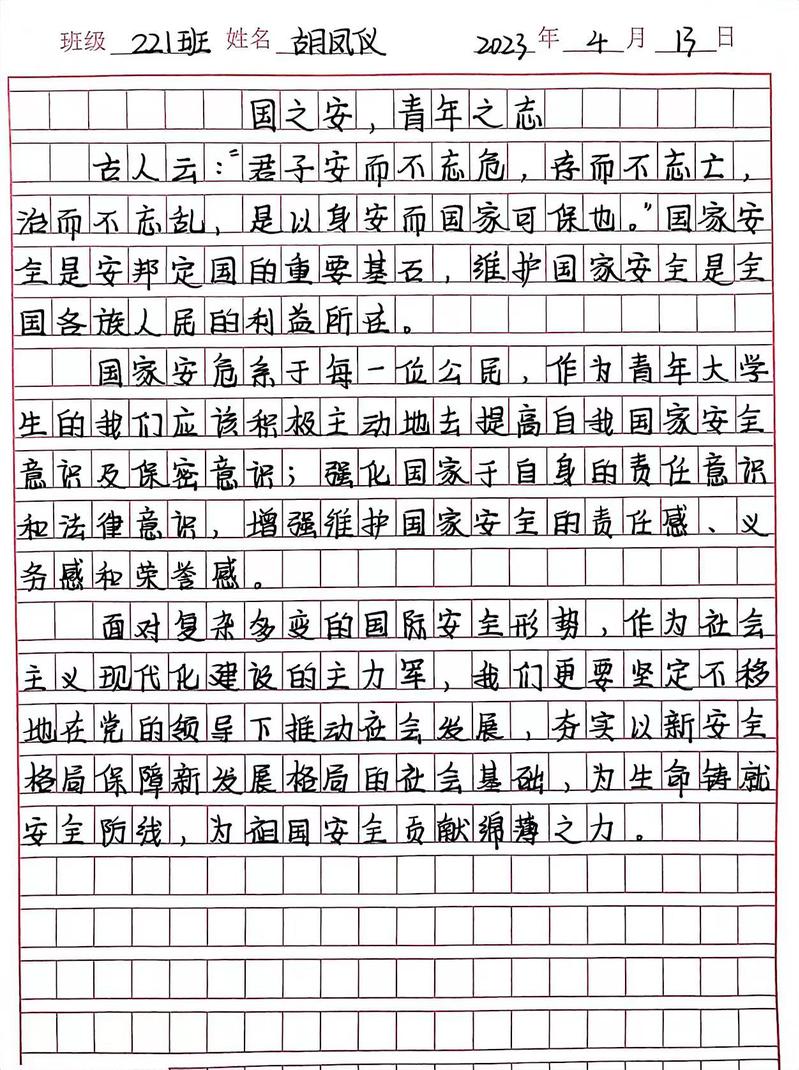 班级 221班 姓名 胡凤仪 2023 年 4 月 13 日
国之安，青年之志
古人云：“君子安而不忘危，存而不忘亡，
治而不忘乱，是以身安而国家可保也。”国家安
全是安邦定国的重要基石，维护国家安全是全
国各族人民的利益所在。
国家安危系于每一位公民，作为青年大学
生的我们应该积极主动地去提高自我国家安全
意识及保密意识；强化国家于自身的责任意识
和法律意识，增强维护国家安全的责任感、义
务感和荣誉感。
面对复杂多变的国际安全形势，作为社会
主义现代化建设的主力军，我们更要坚定不移
地在党的领导下推动社会发展，夯实以新安全
格局保障新发展格局的社会基础，为生命铸就
安全防线，为祖国安全贡献绵薄之力。